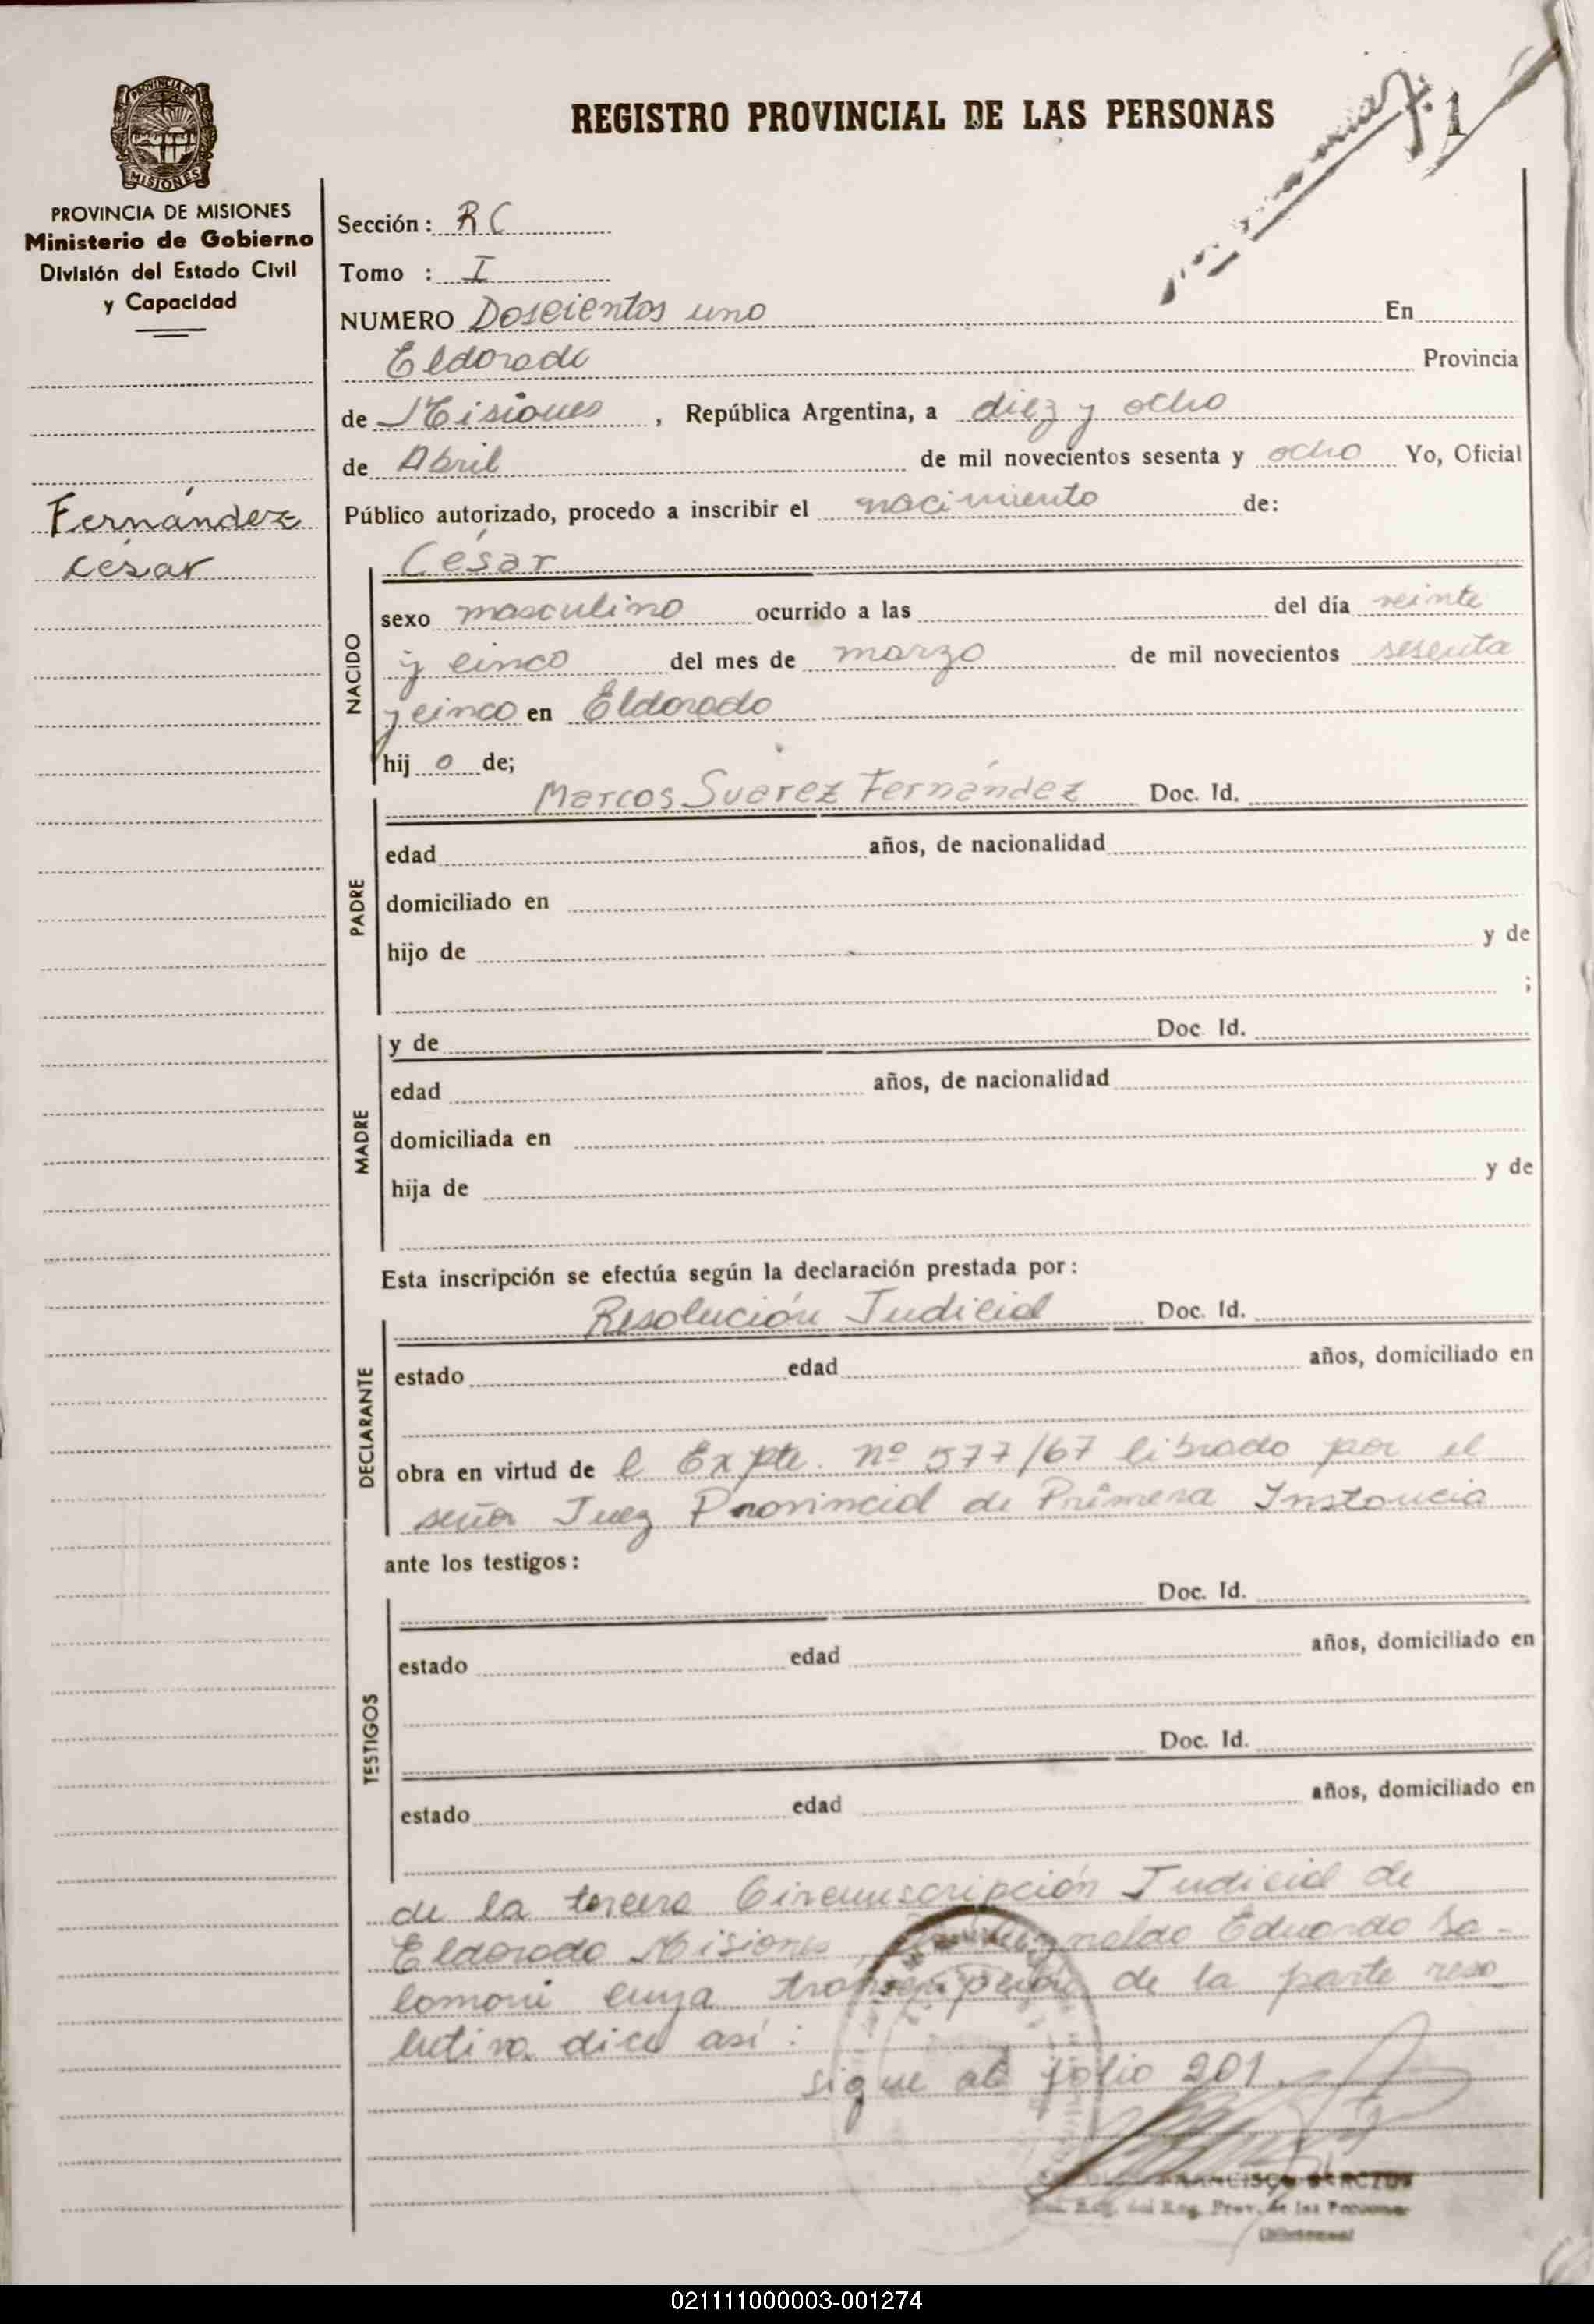 REGISTRO PROVINCIAL DE LAS PERSONAS
PROVINCIA DE
MISIONES
PROVINCIA DE MISIONES
Ministerio de Gobierno
División del Estado Civil
y Capacidad
Fernández
César
Sección: RC
Tomo : I
NUMERO Doscientos uno En
Eldorado Provincia
de Misiones , República Argentina, a diez y ocho
de Abril de mil novecientos sesenta y ocho Yo, Oficial
Público autorizado, procedo a inscribir el nacimiento de:
NACIDO
César
sexo masculino ocurrido a las del día veinte
y cinco del mes de marzo de mil novecientos sesenta
y cinco en Eldorado
hij o de;
PADRE
Marcos Suarez Fernández Doc. Id.
edad años, de nacionalidad
domiciliado en
hijo de y de
;
MADRE
y de Doc. Id.
edad años, de nacionalidad
domiciliada en
hija de y de
Esta inscripción se efectúa según la declaración prestada por:
DECLARANTE
Resolución Judicial Doc. Id.
estado edad años, domiciliado en
obra en virtud de l Expte. nº 577/67 librado por el
señor Juez Provincial de Primera Instancia
ante los testigos:
TESTIGOS
Doc. Id.
estado edad años, domiciliado en
Doc. Id.
estado edad años, domiciliado en
de la tercera Circunscripción Judicial de
Eldorado Misiones, Eduardo Sa-
lomoni cuya transcripción de la parte reso
lutiva dice así:
sigue al folio 201.
FRANCISCO
del Reg. Prov. de las Personas
(Misiones)
021111000003-001274